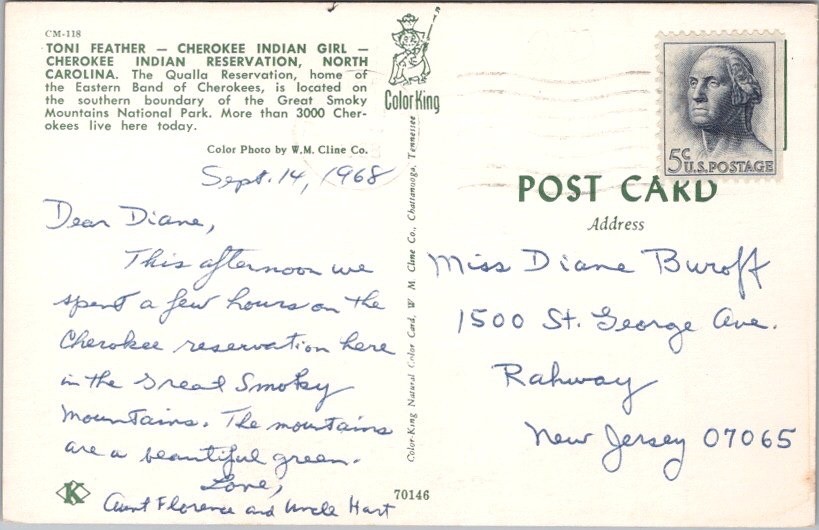 CM-118
TONI FEATHER — CHEROKEE INDIAN GIRL —
CHEROKEE INDIAN RESERVATION, NORTH
CAROLINA. The Qualla Reservation, home of
the Eastern Band of Cherokees, is located on
the southern boundary of the Great Smoky
Mountains National Park. More than 3000 Cher-
okees live here today.
Color Photo by W.M. Cline Co.
Sept. 14, 1968
Dear Diane,
This afternoon we
spent a few hours on the
Cherokee reservation here
in the Great Smoky
Mountains. The mountains
are a beautiful green.
Love,
Aunt Florence and Uncle Hart
K
Color King
Color-King Natural Color Card, W. M. Cline Co., Chattanooga, Tennessee
70146
5c U.S. POSTAGE
POST CARD
Address
Miss Diane Buroff
1500 St. George Ave.
Rahway
New Jersey 07065